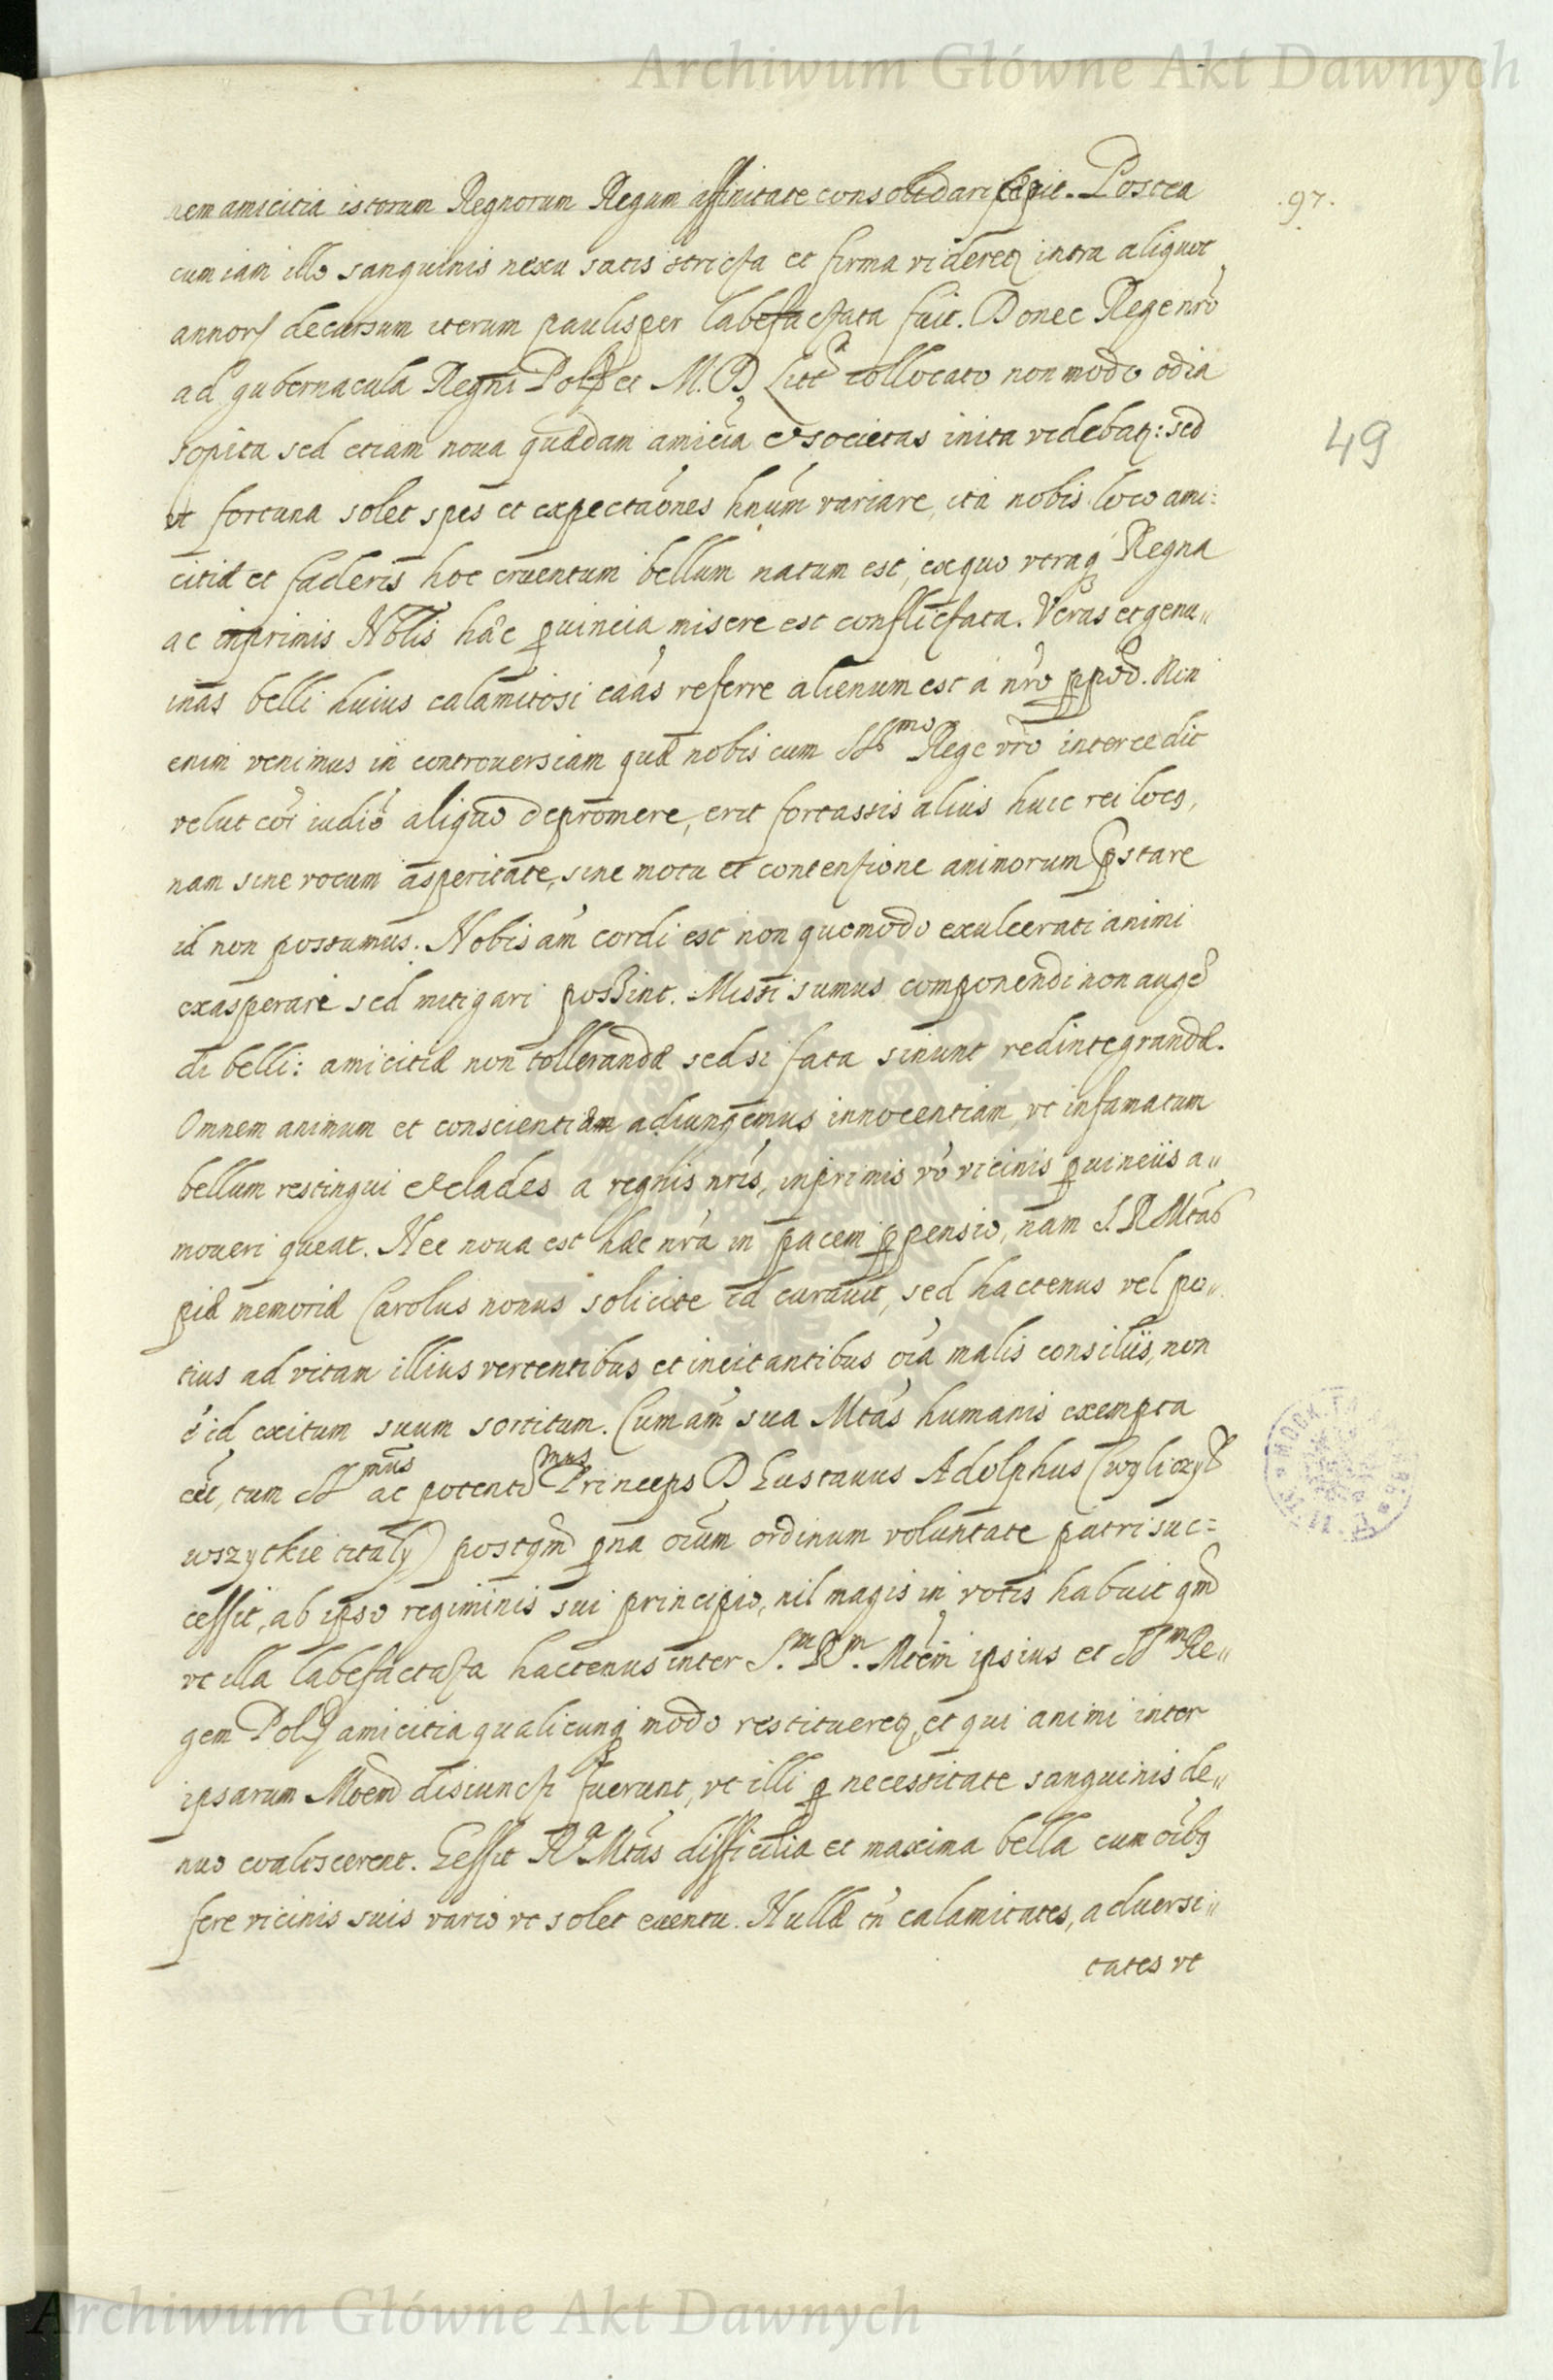 Archiwum Główne Akt Dawnych
nem amicitia istorum Regnorum Regum affinitate consolidari cepit. Postea
.97.
cum iam illo sanguinis nexu satis stricta et firma videretꝫ intra aliquot
annorꝭ decursum iterum paulisper labefactata fuit. Donec Rege nrõ
ad gubernacula Regni Pol. et M. D. Litt collocato non modo odia
sopita sed etiam noua quædam amicia et societas inita videbatꝫ: sed
49
ut fortuna solet spes et expectaões hnũm variare, ita nobis loco ami:
citiæ et fæderis hoc cruentum bellum natum est, ex quo vtraqꝫ Regna
ac inprimis Nobis hæc ꝓuincia misere est conflictata. Veras et genu„
inas belli huius calamitosi cãas referre alienum est a nrõ ꝓpõ. Non
enim venimus in controuersiam quæ nobis cum Smo Rege vrõ intercedit
velut corã iudiẽ aliquo depromere, erit fortassis alius huic rei locꝰ,
nam sine vocum asperitate, sine motu et contentione animorum p̃stare
id non possumus. Nobis aũm cordi est non quomodo exulcerati animi
exasperari sed mitigari possint. Missi sumus componendi non augẽ
di belli: amicitiæ non tollerandæ sed si fata sinunt redintegrandæ.
Omnem animum et conscientiam adiungemus innocentiam, vt infamatum
bellum restingui et clades a regnis nrĩs, inprimis võ vicinis ꝓuinciis a„
moueri queat. Nec noua est hæc nrã in pacem ꝓpensio, nam S. R. Mtãs
piæ memoriæ Carolus nonus solicite id curauit, sed hactenus vel po„
tius ad vitam illius vertentibus et incitantibus oĩa malis consiliis, non
ẽ id exitum suum sortitum. Cum aũm sua Mtãs humanis exempta
eẽt, tum Smus ac potentmus Princeps D Gustauus Adolphus (wyliczył
wszytkie tituły) postqm̃ pna oĩum ordinum voluntate patri suc=
cessit, ab ipso regiminis sui principio, nil magis in votis habuit qm̃
vt illa labefactata hactenus inter S.m R.m Mtẽm ipsius et Sm Re„
gem Pol. amicitia qualicunqꝫ modo restitueretꝫ, et qui animi inter
ipsarum Mtem̃ disiuncti fuerunt, vt illi ꝓ necessitate sanguinis de„
nuo coaliscerent. Gessit Ra Mtãs difficilia et maxima bella cum oĩbꝰ
fere vicinis suis vario vt solet euentu. Nullæ tñ calamitates, aduersi„
tates vt
Archiwum Główne Akt Dawnych